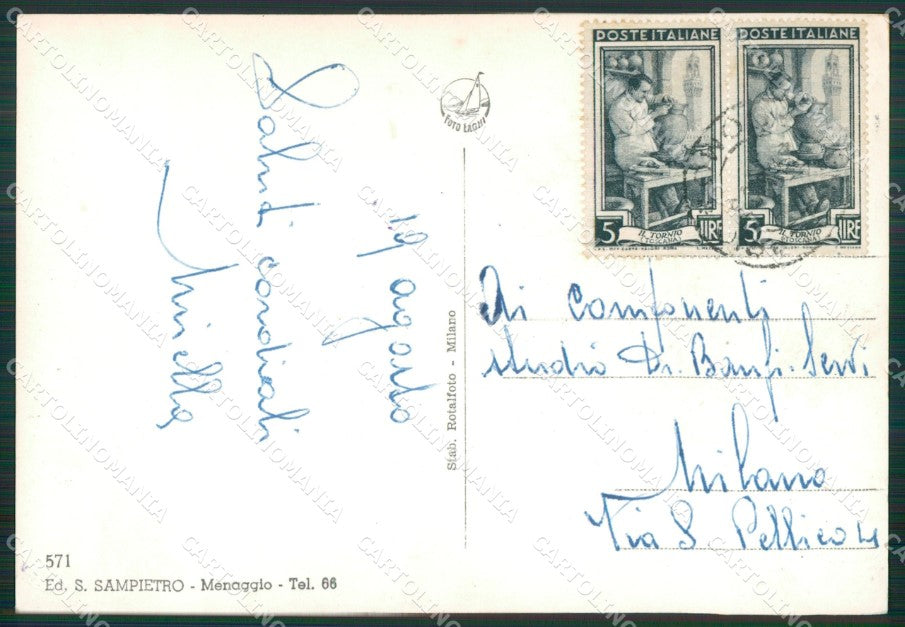 POSTE ITALIANE
5 IL TORNIO LIRE
POSTE ITALIANE
5 IL TORNIO LIRE
FOTO LAGHI
Saluti cordiali
Miella
19 agosto
Stab. Rotalfoto - Milano
Ai Componenti
studio Dr. Banfi-Servi
Milano
Via S. Pellico
571
Ed. S. SAMPIETRO - Menaggio - Tel. 66
CARTOLINOMANIA